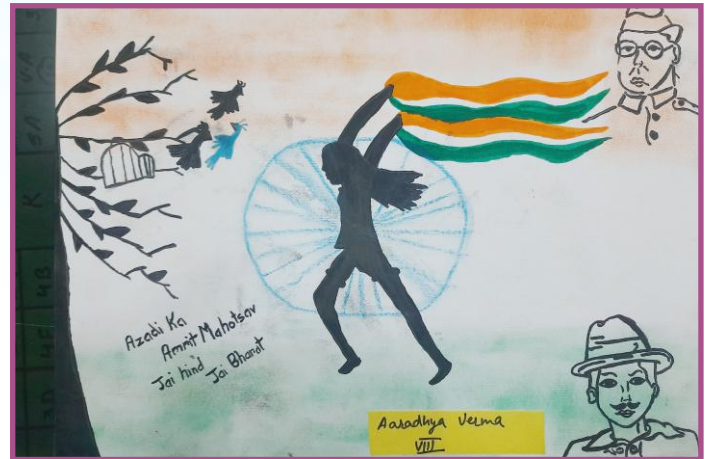 Azadi Ka
Amrit Mahotsav
Jai hind
Jai Bharat
Aaradhya Verma
VIII